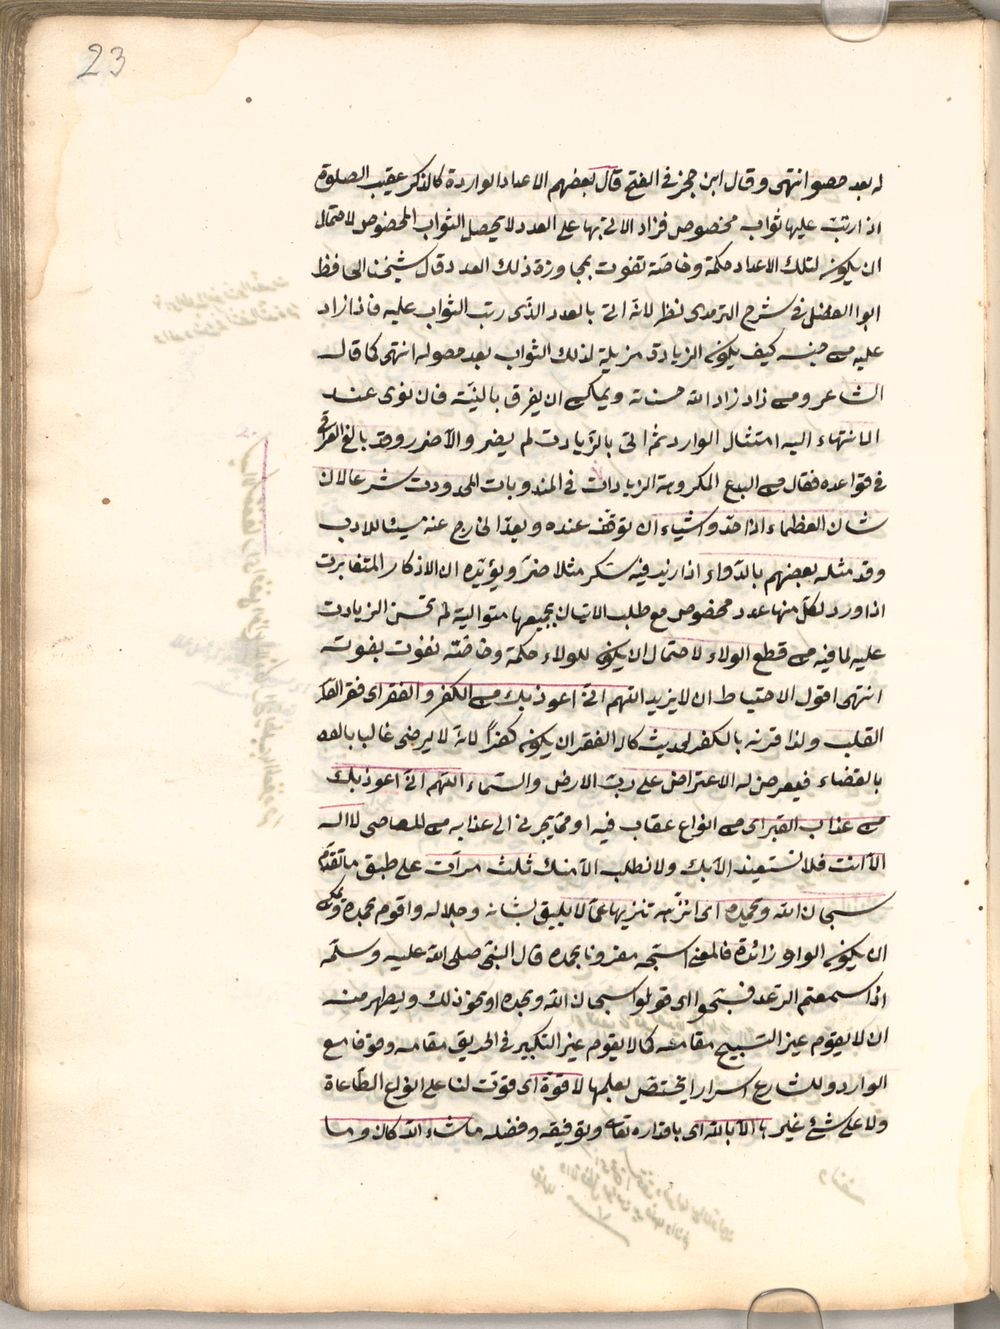 23
له بعد حصو انتهى وقال ابن حجر في الفتح قال بعضهم الاعداد الواردة كالذكر عقيب الصلوة
اذا رتب عليها ثواب مخصوص فزاد الاتي بها على العدد لا يحصل الثواب المخصوص لاحتمال
ان يكون لتلك الاعداد حكمة وخاصة تفوت بمجاوزة ذلك العدد قال شيخنا الحافظ
ابو الفضل في شرح الترمذى نظر لانه اتى بالعدد الذى رتب الثواب عليه فاذا زاد
عليه من جنسه كيف يكون الزيادة مزيلة لذلك الثواب بعد حصوله انتهى كما قال
الشاعر ومن زاد زاد الله حسناته ويمكن ان يفرق بالنية فان نوى عند
الانتهاء اليه امتثال الوارد ثم اتى بالزيادت لم يضر والا ضر وقد بالغ القرافي
في قواعده فقال من البدع المكروهة الزيادات في المندوبات المحدودت شرعا لان
شان العظماء اذا حدوا شياء ان توقف عنده ويعد الخارج عنه مسيئا للادب
وقد مثله بعضهم بالدواء اذا زيد فيه سكر مثلا ضر ويؤيده ان الاذكار المتغايرت
اذا ورد لكل منها عدد مخصوص مع طلب الاتيان بجميعها متوالية لم تحسن الزيادت
عليه لما فيه من قطع الولاء لاحتمال ان يكون للولاء حكمة وخاصة تفوت بفوته
انتهى اقول الاحتياط ان لا يزيد اللهم انى اعوذ بك من الكفر والفقر اى فقر
القلب ولذا قرنه بالكفر لحديث كاد الفقر ان يكون كفرا لانه لا يرضى غالبا
بالقضاء فيعرض له الاعتراض على رب الارض والسماء اللهم انى اعوذ بك
من عذاب القبر اى من انواع عقاب فيه او مما يجرنى الى عذابه من المعاصى لا اله
الا انت فلا نستعيذ الا بك ولا نطلب الا منك ثلث مرات على طبق ما تقدم
سبحان الله وبحمده اى انزهه تنزيها عما لا يليق بشانه وجلاله واقوم بحمده ويمكن
ان يكون الواو زائدة فالمعنى اسبحه مقرونا بحمده قال النبى صلى الله عليه وسلم
اذا سمعتم الرعد فسبحوا اى قولوا سبحان الله وبحمده او نحو ذلك ويظهر منه
ان لا يقوم غير التسبيح مقامه كما لا يقوم غير التكبير في الحريق مقامه وقوفا مع
الوارد وللشارع اسرار يختص بعلمها لا قوة اى قوت لنا على انواع الطاعة
ولا على شئ غيرها الا بالله اى باقداره تعالى وتوفيقه وفضله ما شاء الله كان وما